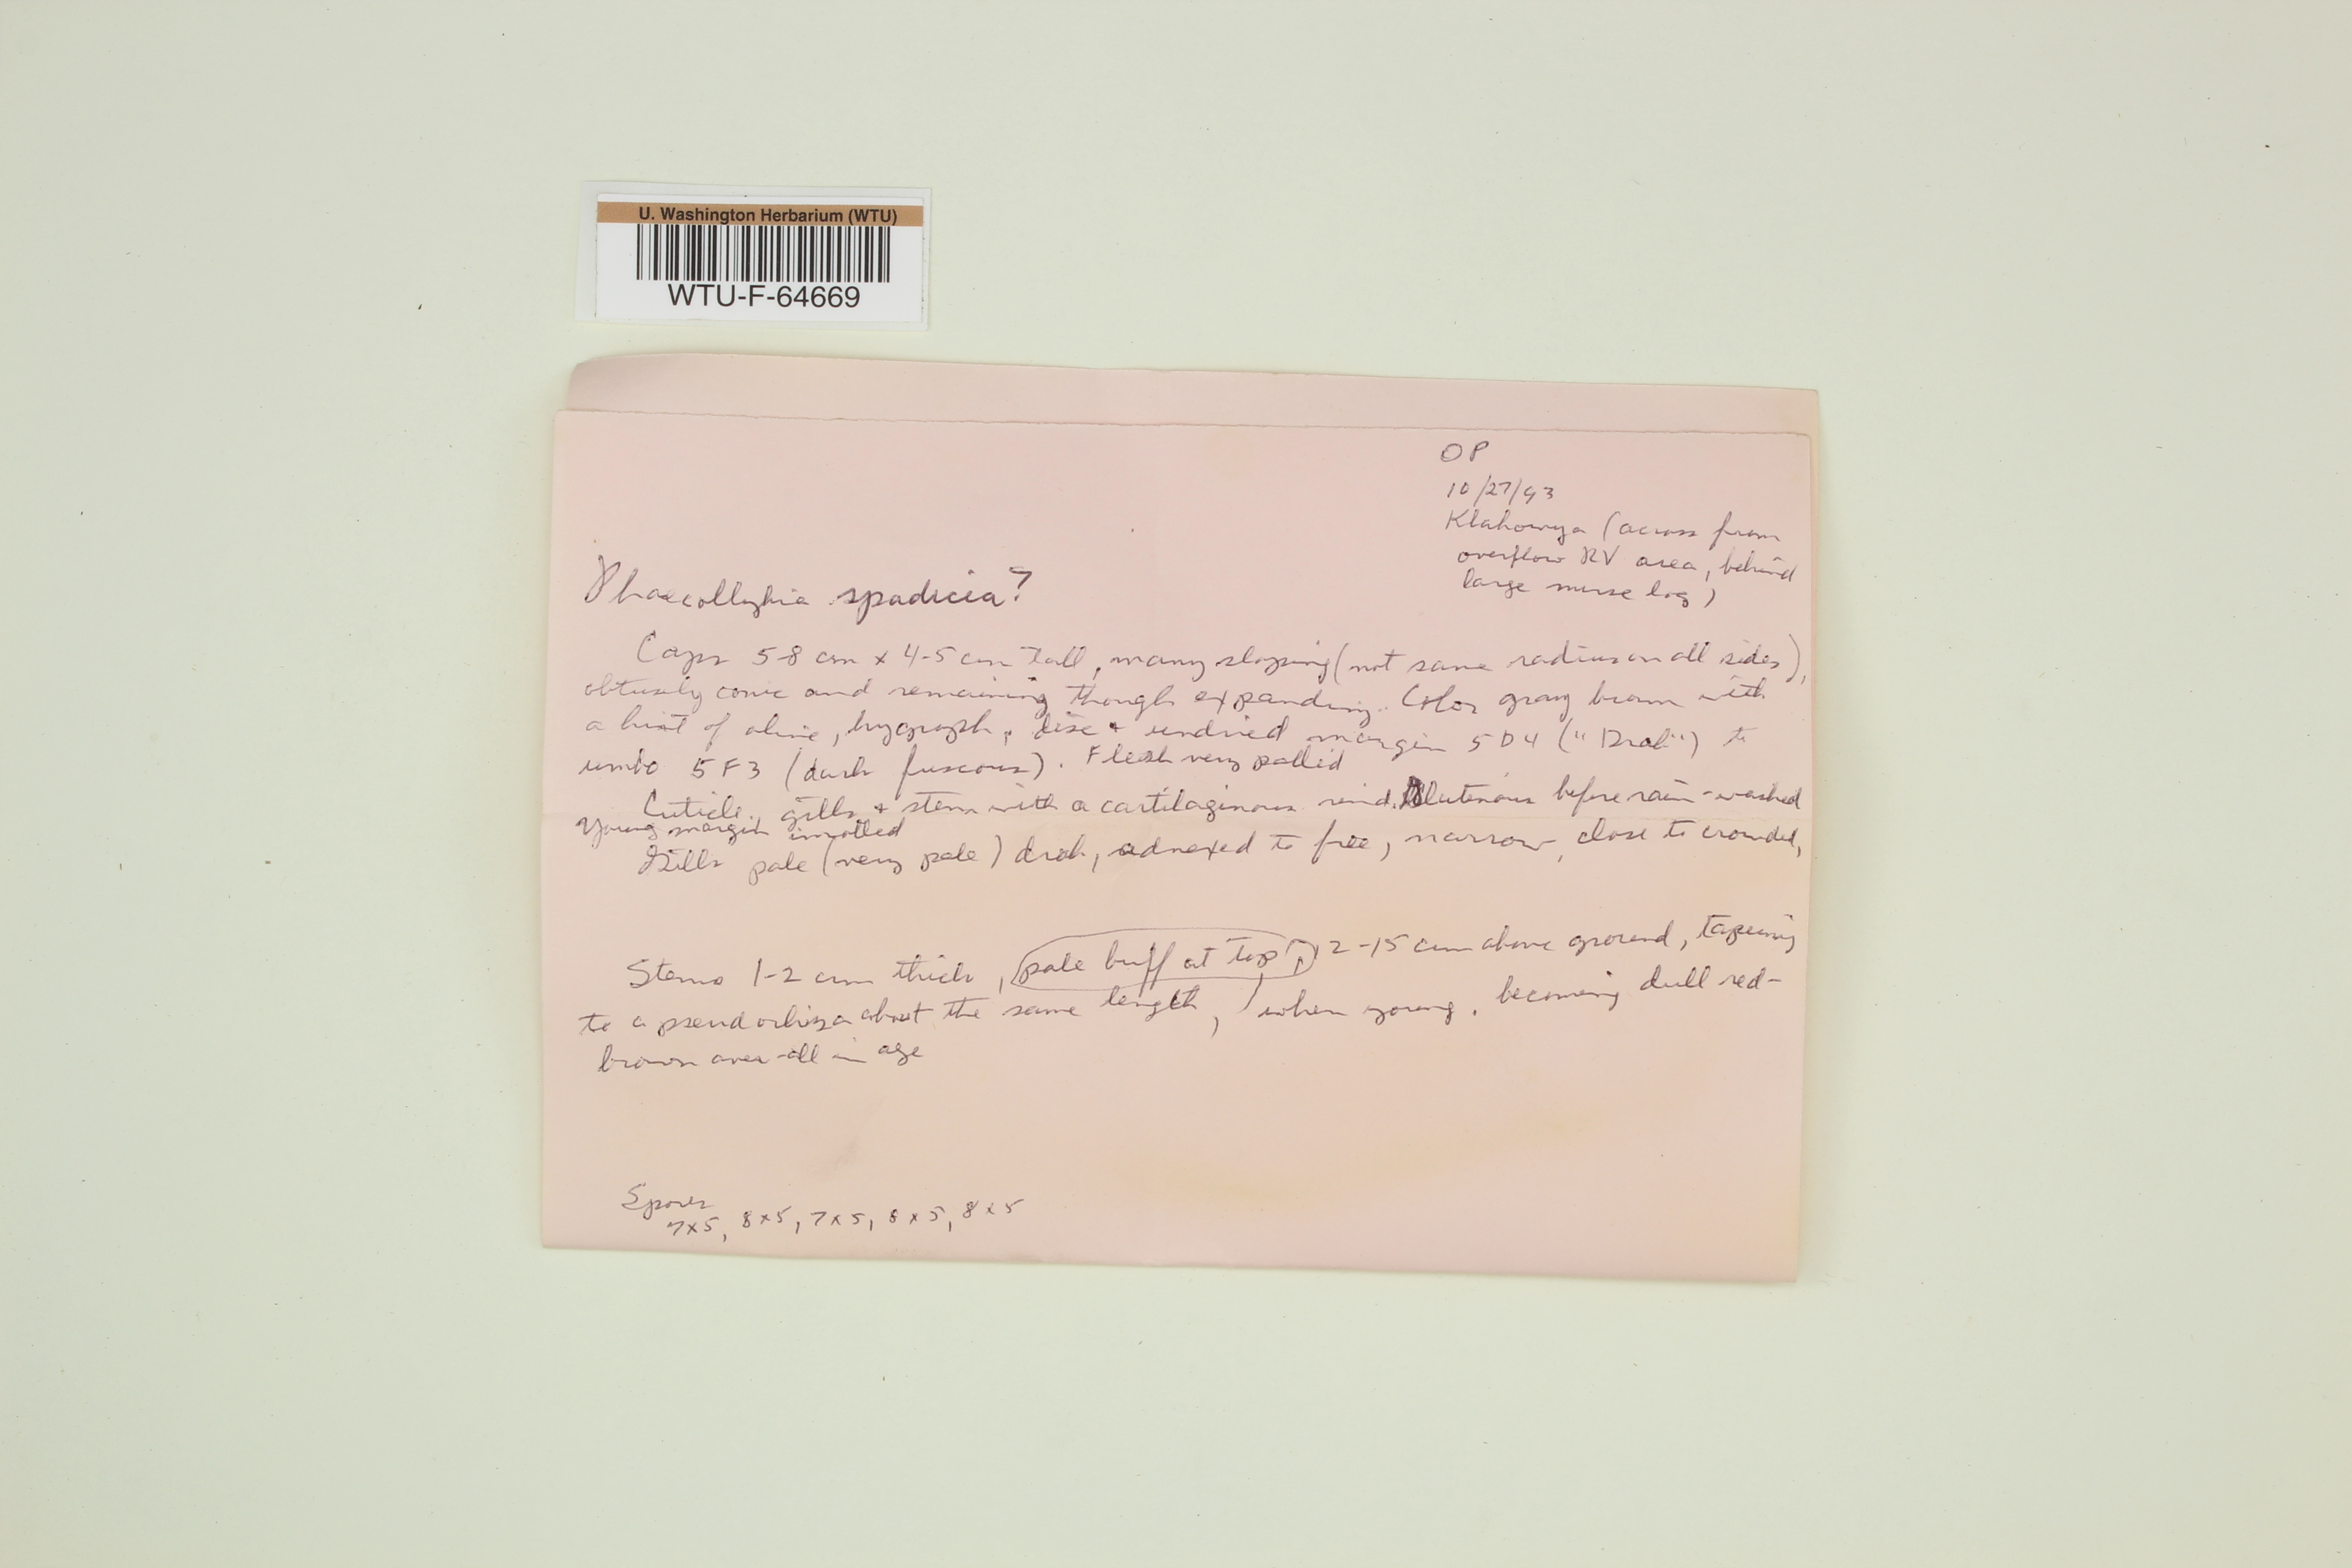 U. Washington Herbarium (WTU)
WTU-F-64669
OP
10/27/93
Klahowya (across from
overflow RV area, behind
large nurse log)
Phaeocollybia spadicia?
Caps 5-8 cm x 4-5 cm tall, many sloping (not same radius on all sides),
obtusely conic and remaining though expanding. Color gray brown with
a hint of olive, hygroph, disc + undried margin 5D4 ("Drab") to
umbo 5F3 (dark fuscous). Flesh very pallid
Cuticle, gills + stem with a cartilaginous rind. Glutenous before rain-washed
Young margin inrolled
Gills pale (very pale) drab, adnexed to free, narrow, close to crowded,
Stems 1-2 cm thick, pale buff at top, 2-15 cm above ground, tapering
to a pseudorhiza about the same length, when young, becoming dull red-
brown over-all in age
Spores
7x5, 8x5, 7x5, 8x5, 8x5